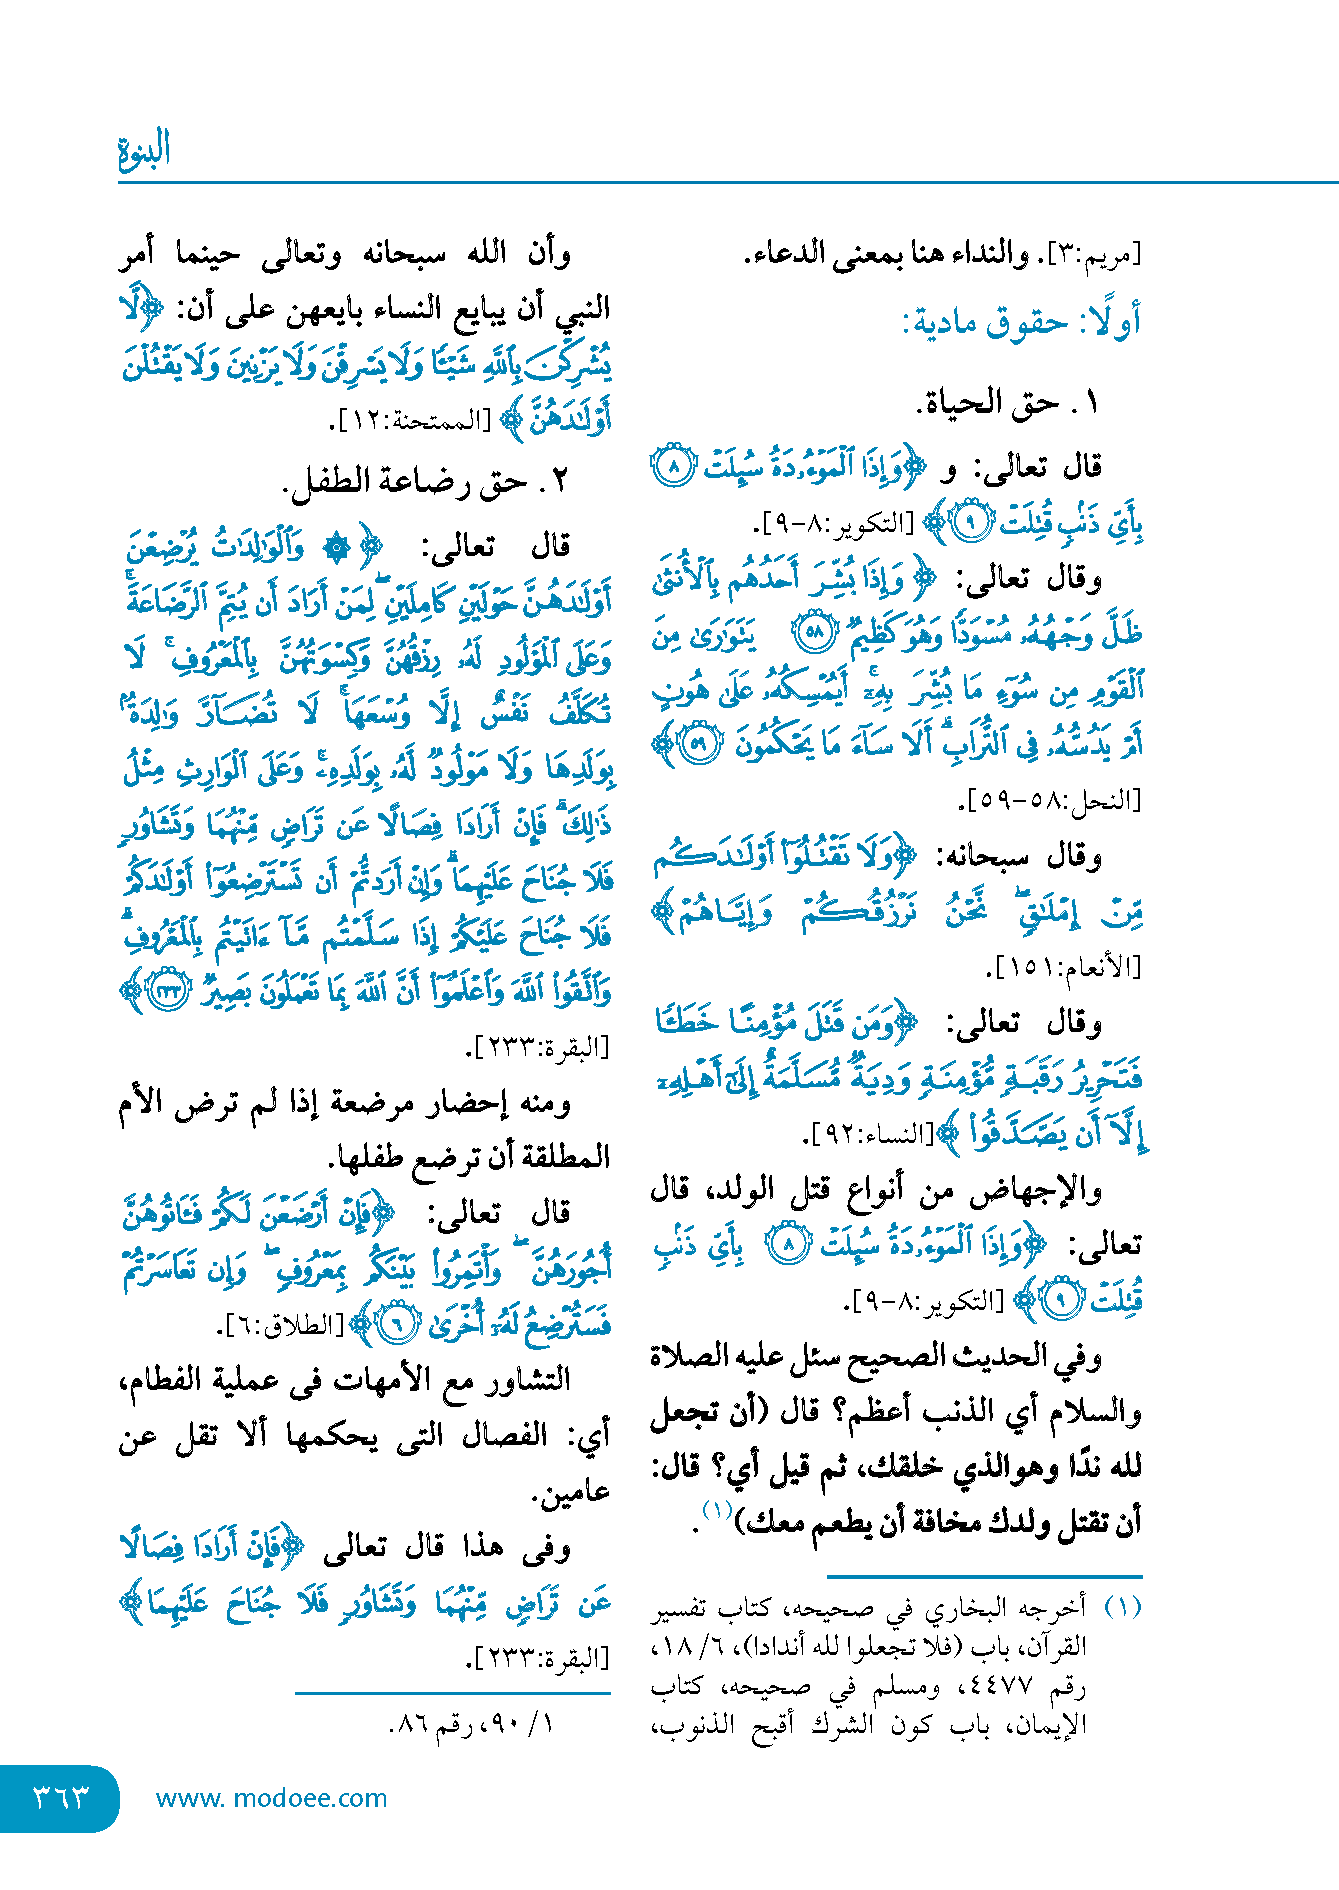 البنوة
[مريم:٣]. والنداء هنا بمعنى الدعاء.
أولًا: حقوق مادية:
١. حق الحياة.
قال تعالى: و ﴿وَإِذَا ٱلْمَوْءُۥدَةُ سُئِلَتْ ٨
بِأَىِّ ذَنۢبٍ قُتِلَتْ ٩﴾ [التكوير:٨-٩].
وقال تعالى: ﴿وَإِذَا بُشِّرَ أَحَدُهُم بِٱلْأُنثَىٰ
ظَلَّ وَجْهُهُۥ مُسْوَدًّا وَهُوَ كَظِيمٌ ٥٨ يَتَوَٰرَىٰ مِنَ
ٱلْقَوْمِ مِن سُوٓءِ مَا بُشِّرَ بِهِۦٓ ۚ أَيُمْسِكُهُۥ عَلَىٰ هُونٍ
أَمْ يَدُسُّهُۥ فِى ٱلتُّرَابِ ۗ أَلَا سَآءَ مَا يَحْكُمُونَ ٥٩﴾
[النحل:٥٨-٥٩].
وقال سبحانه: ﴿وَلَا تَقْتُلُوٓا۟ أَوْلَٰدَكُم
مِّنْ إِمْلَٰقٍ ۖ نَّحْنُ نَرْزُقُكُمْ وَإِيَّاهُمْ﴾
[الأنعام:١٥١].
وقال تعالى: ﴿وَمَن قَتَلَ مُؤْمِنًا خَطَـًٔا
فَتَحْرِيرُ رَقَبَةٍ مُّؤْمِنَةٍ وَدِيَةٌ مُّسَلَّمَةٌ إِلَىٰٓ أَهْلِهِۦٓ
إِلَّآ أَن يَصَّدَّقُوا۟﴾ [النساء:٩٢].
والإجهاض من أنواع قتل الولد، قال
تعالى: ﴿وَإِذَا ٱلْمَوْءُۥدَةُ سُئِلَتْ ٨ بِأَىِّ ذَنۢبٍ
قُتِلَتْ ٩﴾ [التكوير:٨-٩].
وفي الحديث الصحيح سئل عليه الصلاة
والسلام أي الذنب أعظم؟ قال (أن تجعل
لله ندًّا وهوالذي خلقك، ثم قيل أي؟ قال:
أن تقتل ولدك مخافة أن يطعم معك)(١).
(١) أخرجه البخاري في صحيحه، كتاب تفسير
القرآن، باب (فلا تجعلوا لله أندادا)، ٦/ ١٨،
رقم ٤٤٧٧، ومسلم في صحيحه، كتاب
الإيمان، باب كون الشرك أقبح الذنوب،
وأن الله سبحانه وتعالى حينما أمر
النبي أن يبايع النساء بايعهن على أن: ﴿لَّا
يُشْرِكْنَ بِٱللَّهِ شَيْـًٔا وَلَا يَسْرِقْنَ وَلَا يَزْنِينَ وَلَا يَقْتُلْنَ
أَوْلَٰدَهُنَّ﴾ [الممتحنة:١٢].
٢. حق رضاعة الطفل.
قال تعالى: ﴿۞ وَٱلْوَٰلِدَٰتُ يُرْضِعْنَ
أَوْلَٰدَهُنَّ حَوْلَيْنِ كَامِلَيْنِ ۖ لِمَنْ أَرَادَ أَن يُتِمَّ ٱلرَّضَاعَةَ ۚ
وَعَلَى ٱلْمَوْلُودِ لَهُۥ رِزْقُهُنَّ وَكِسْوَتُهُنَّ بِٱلْمَعْرُوفِ ۚ لَا
تُكَلَّفُ نَفْسٌ إِلَّا وُسْعَهَا ۚ لَا تُضَآرَّ وَٰلِدَةٌۢ
بِوَلَدِهَا وَلَا مَوْلُودٌ لَّهُۥ بِوَلَدِهِۦ ۚ وَعَلَى ٱلْوَارِثِ مِثْلُ
ذَٰلِكَ ۗ فَإِنْ أَرَادَا فِصَالًا عَن تَرَاضٍ مِّنْهُمَا وَتَشَاوُرٍ
فَلَا جُنَاحَ عَلَيْهِمَا ۗ وَإِنْ أَرَدتُّمْ أَن تَسْتَرْضِعُوٓا۟ أَوْلَٰدَكُمْ
فَلَا جُنَاحَ عَلَيْكُمْ إِذَا سَلَّمْتُم مَّآ ءَاتَيْتُم بِٱلْمَعْرُوفِ ۗ
وَٱتَّقُوا۟ ٱللَّهَ وَٱعْلَمُوٓا۟ أَنَّ ٱللَّهَ بِمَا تَعْمَلُونَ بَصِيرٌ ٢٣٣﴾
[البقرة:٢٣٣].
ومنه إحضار مرضعة إذا لم ترض الأم
المطلقة أن ترضع طفلها.
قال تعالى: ﴿فَإِنْ أَرْضَعْنَ لَكُمْ فَـَٔاتُوهُنَّ
أُجُورَهُنَّ ۖ وَأْتَمِرُوا۟ بَيْنَكُم بِمَعْرُوفٍ ۖ وَإِن تَعَاسَرْتُمْ
فَسَتُرْضِعُ لَهُۥٓ أُخْرَىٰ ٦﴾ [الطلاق:٦].
التشاور مع الأمهات فى عملية الفطام،
أي: الفصال التى يحكمها ألا تقل عن
عامين.
وفى هذا قال تعالى ﴿فَإِنْ أَرَادَا فِصَالًا
عَن تَرَاضٍ مِّنْهُمَا وَتَشَاوُرٍ فَلَا جُنَاحَ عَلَيْهِمَا﴾
[البقرة:٢٣٣].
١/ ٩٠، رقم ٨٦.
٣٦٣
www. modoee.com